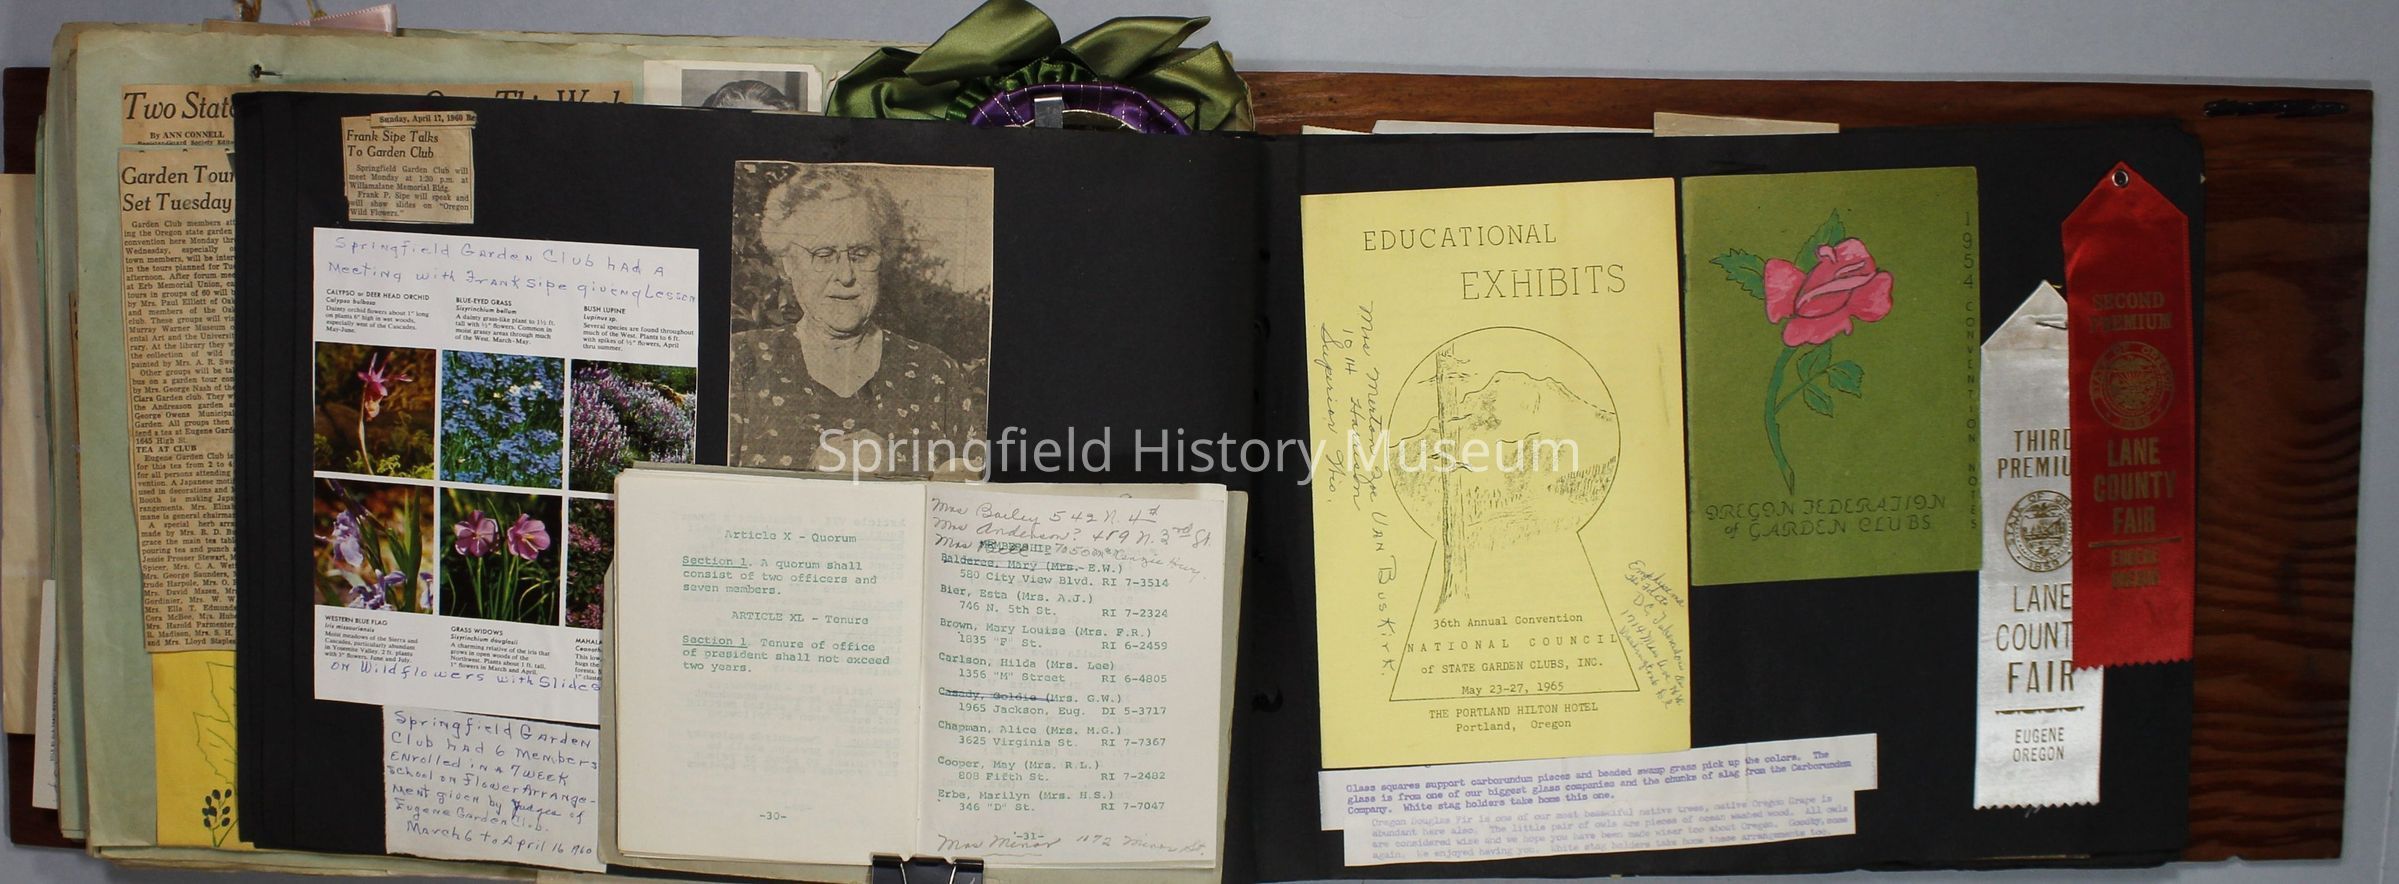 Two State
Own This Week
By ANN CONNELL
Garden Tour
Set Tuesday
Garden Club members
ing the Oregon state garden
convention here Monday
Wednesday, especially
town members, will be
in the tours planned for
afternoon. After forum
at Erb Memorial Union,
tours in groups of 60 will
by Mrs. Paul Elliott of
and members of the
club. These groups will
Murray Warner Museum
ental Art and the
rary. At the library they
the collection of wild
painted by Mrs. A. R.
Other groups will be
bus on a garden tour
by Mrs. George Nash of the
Clara Garden club. They
the Andreason garden
George Owens Municipal
Garden. All groups then
tend a tea at Eugene
1645 High St.
TEA AT CLUB
Eugene Garden Club is
for this tea from 2 to 4
for all persons attending
vention. A Japanese
used in decorations and
Booth is making
rangements. Mrs.
mane is general
A special herb
made by Mrs. R. D.
grace the main tea
pouring tea and punch
Jessie Prosser Stewart,
Spicer, Mrs. C. A.
Mrs. George Saunders,
trude Harpole, Mrs. O.
Mrs. David Mazen,
Gordinier, Mrs. W. W.
Mrs. Ella T. Edmunds
Cora McBee, Mrs.
Mrs. Harold Parmenter,
R. Madison, Mrs. S. H.
and Mrs. Lloyd Staples
Sunday, April 17, 1960
Frank Sipe Talks
To Garden Club
Springfield Garden Club will
meet Monday at 1:30 p.m. at
Willamalane Memorial Bldg.
Frank P. Sipe will speak and
will show slides on "Oregon
Wild Flowers."
Springfield Garden Club had a
Meeting with Frank Sipe giveng Lesson
CALYPSO or DEER HEAD ORCHID
Calypso bulbosa
Dainty orchid flowers about 1" long
on plants 6" high in wet woods,
especially west of the Cascades.
May-June.
BLUE-EYED GRASS
Sisyrinchium bellum
A dainty grass-like plant to 1½ ft.
tall with ½" flowers. Common in
moist grassy areas through much
of the West. March-May.
BUSH LUPINE
Lupinus sp.
Several species are found throughout
much of the West. Plants to 6 ft.
with spikes of ½" flowers, April
thru summer.
WESTERN BLUE FLAG
Iris missouriensis
Moist meadows of the Sierra and
Cascades, particularly abundant
in Yosemite Valley. 2 ft. plants
with 3" flowers. June and July.
GRASS WIDOWS
Sisyrinchium douglasii
A charming relative of the iris that
grows in open woods of the
Northwest. Plants about 1 ft. tall,
1" flowers in March and April.
MAHALA
on Wildflowers with Slides
Springfield Garden
Club had 6 members
enrolled in a 7 week
school on Flower Arrange-
ment given by Judges of
Eugene Garden Club.
March 6 to April 16 1960
Article X - Quorum
Section 1. A quorum shall
consist of two officers and
seven members.
ARTICLE XL - Tenure
Section 1. Tenure of office
of president shall not exceed
two years.
-30-
Mrs Bailey 542 N. 4th
Mrs Anderson? 489 N. 3rd St.
MEMBERSHIP
Balderee, Mary (Mrs. E.W.)
580 City View Blvd. RI 7-3514
Bier, Esta (Mrs. A.J.)
746 N. 5th St. RI 7-2324
Brown, Mary Louise (Mrs. F.R.)
1835 "F" St. RI 6-2459
Carlson, Hilda (Mrs. Lee)
1356 "M" Street RI 6-4805
Casady, Goldie (Mrs. G.W.)
1965 Jackson, Eug. DI 5-3717
Chapman, Alice (Mrs. M.G.)
3625 Virginia St. RI 7-7367
Cooper, May (Mrs. R.L.)
808 Fifth St. RI 7-2482
Erbe, Marilyn (Mrs. H.S.)
346 "D" St. RI 7-7047
-31-
Mrs Minor 1172 Minor St.
Springfield History Museum
EDUCATIONAL
EXHIBITS
Superior Wis.
36th Annual Convention
NATIONAL COUNCIL
of STATE GARDEN CLUBS, INC.
May 23-27, 1965
THE PORTLAND HILTON HOTEL
Portland, Oregon
1954 CONVENTION NOTES
OREGON FEDERATION
of GARDEN CLUBS
Glass squares support carborundum pieces and beaded swamp grass pick up the colors. The
glass is from one of our biggest glass companies and the chunks of slag from the Carborundum
Company. White stag holders take home this one.
Oregon Douglas Fir is one of our most beautiful native trees, native Oregon Grape is
abundant here also. The little pair of owls are pieces of ocean washed wood. All owls
are considered wise and we hope you have been made wiser too about Oregon. Goodby, come
again. We enjoyed having you. White stag holders take home these arrangements too.
THIRD
PREMIUM
STATE OF OREGON
1859
LANE
COUNTY
FAIR
EUGENE
OREGON
SECOND
PREMIUM
STATE OF OREGON
1859
LANE
COUNTY
FAIR
EUGENE
OREGON